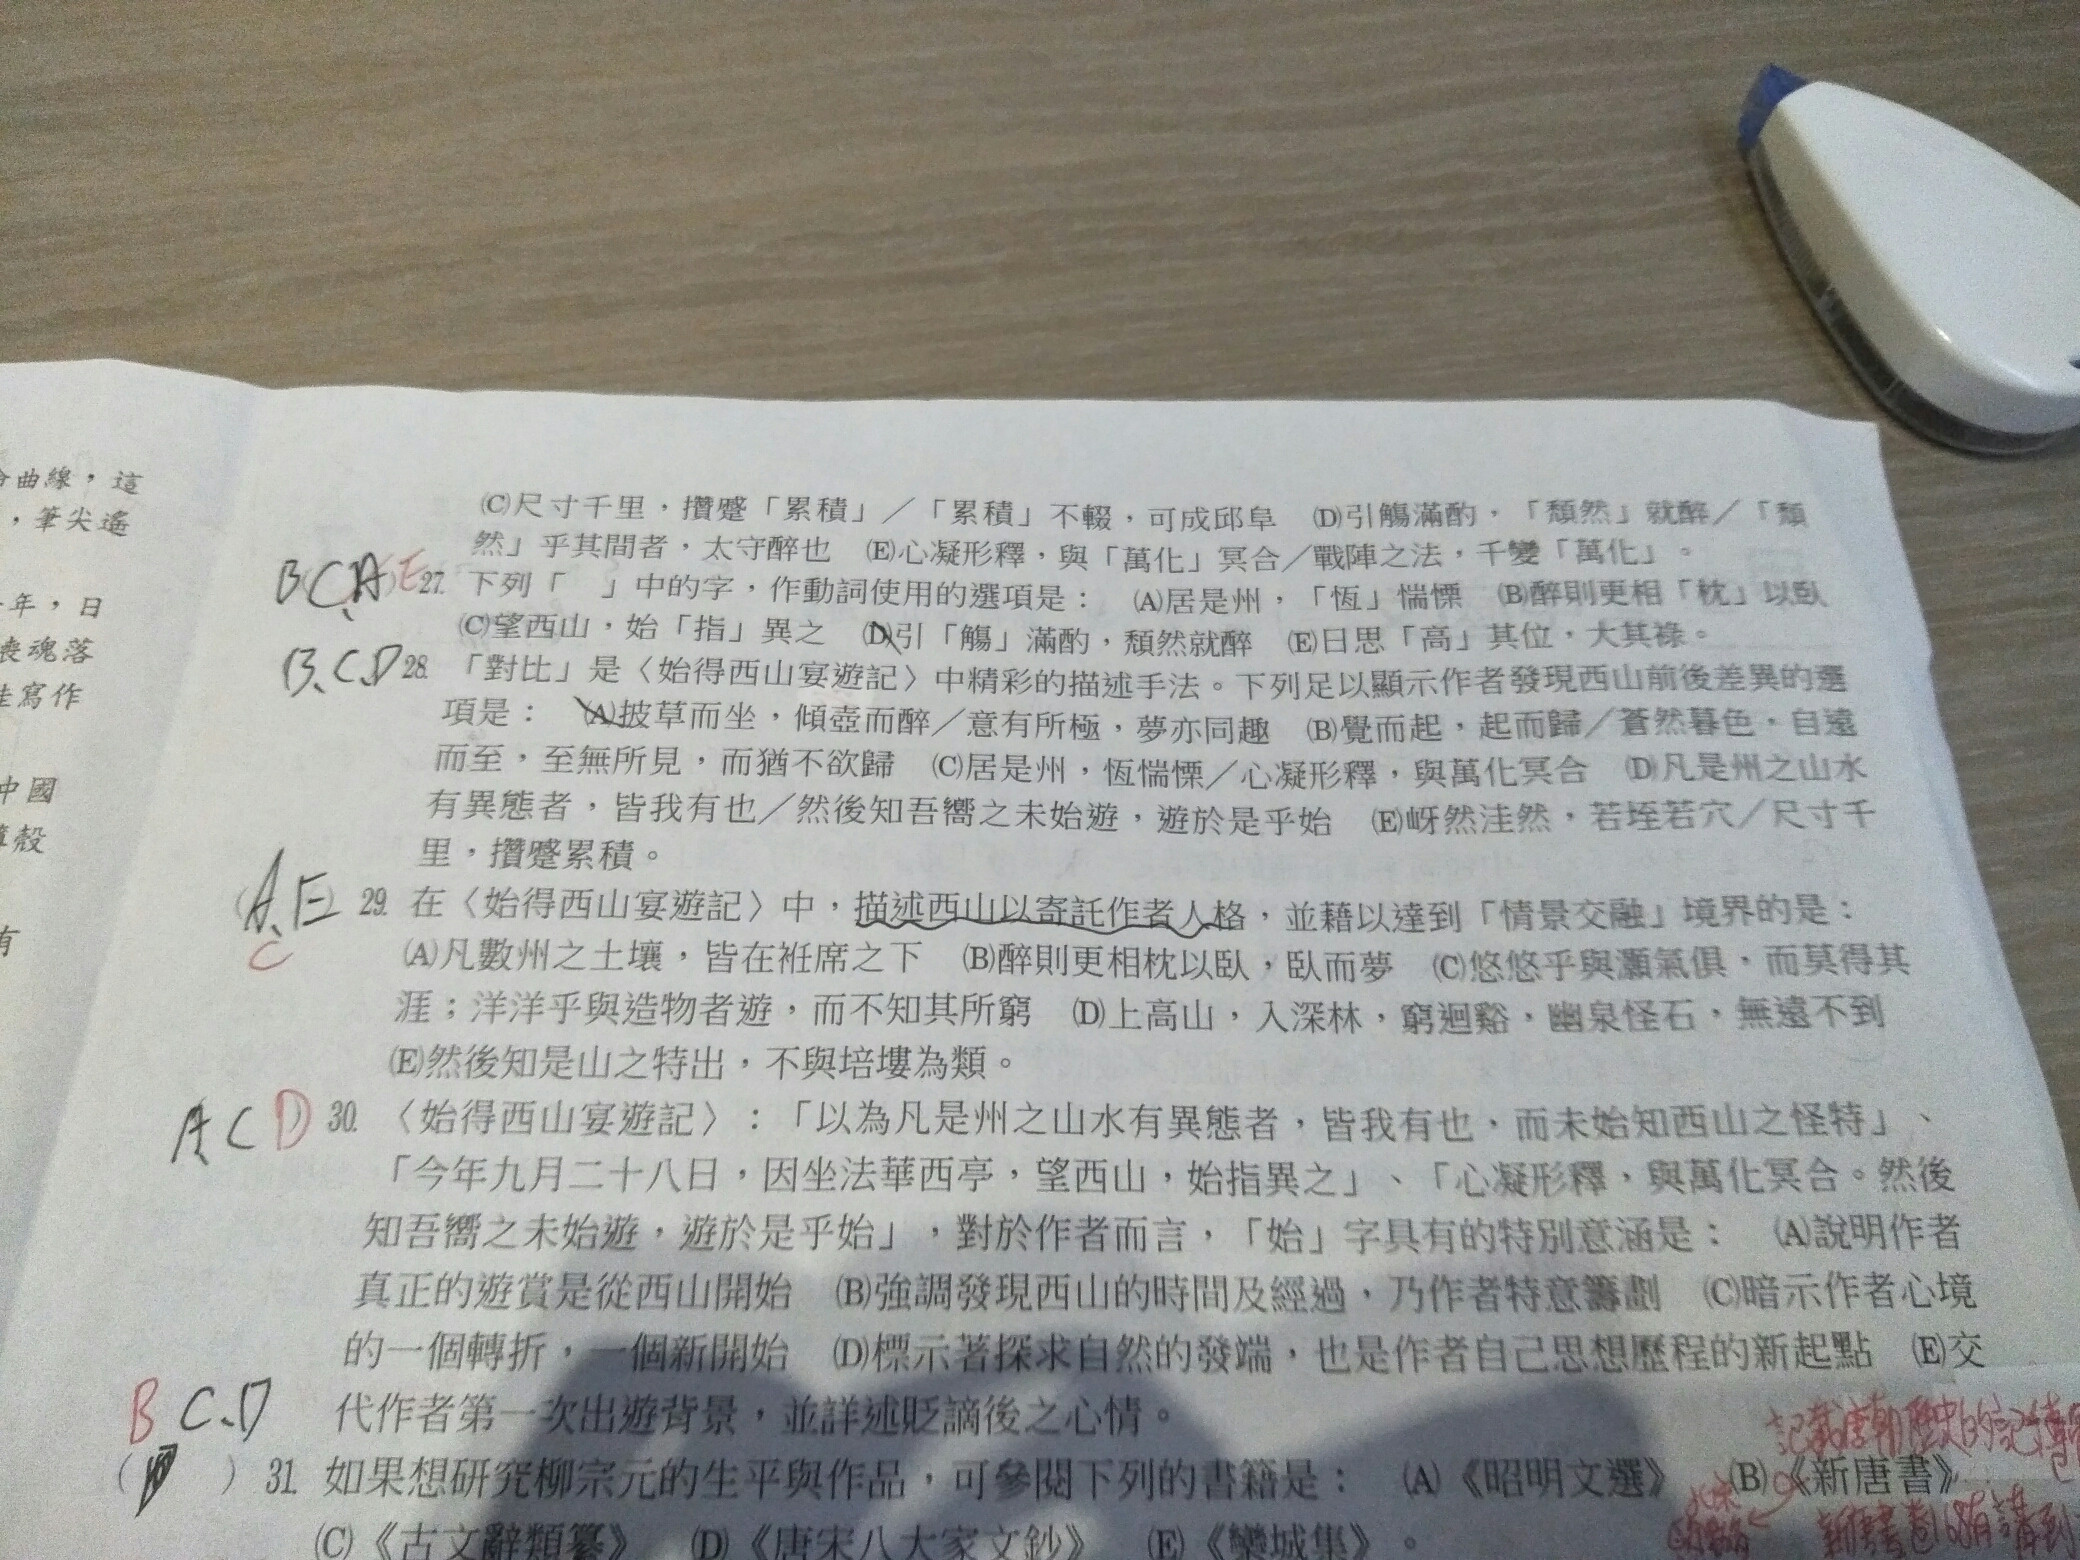 曲線，這
，筆尖遙
年，日
喪魂落
寫作
中國
殼
有
(C)尺寸千里，攢蹙「累積」／「累積」不輟，可成邱阜　(D)引觴滿酌，「頹然」就醉／「頹
然」乎其間者，太守醉也　(E)心凝形釋，與「萬化」冥合／戰陣之法，千變「萬化」。
B(C、A)E 27. 下列「　」中的字，作動詞使用的選項是：　(A)居是州，「恆」惴慄　(B)醉則更相「枕」以臥
(C)望西山，始「指」異之　(D)引「觴」滿酌，頹然就醉　(E)日思「高」其位，大其祿。
B、C、D 28. 「對比」是〈始得西山宴遊記〉中精彩的描述手法。下列足以顯示作者發現西山前後差異的選
項是：　(A)披草而坐，傾壺而醉／意有所極，夢亦同趣　(B)覺而起，起而歸／蒼然暮色，自遠
而至，至無所見，而猶不欲歸　(C)居是州，恆惴慄／心凝形釋，與萬化冥合　(D)凡是州之山水
有異態者，皆我有也／然後知吾嚮之未始遊，遊於是乎始　(E)岈然洼然，若垤若穴／尺寸千
里，攢蹙累積。
(A、E) 29. 在〈始得西山宴遊記〉中，描述西山以寄託作者人格，並藉以達到「情景交融」境界的是：
C
(A)凡數州之土壤，皆在衽席之下　(B)醉則更相枕以臥，臥而夢　(C)悠悠乎與灝氣俱，而莫得其
涯；洋洋乎與造物者遊，而不知其所窮　(D)上高山，入深林，窮迴谿，幽泉怪石，無遠不到
(E)然後知是山之特出，不與培塿為類。
A、C D 30. 〈始得西山宴遊記〉：「以為凡是州之山水有異態者，皆我有也，而未始知西山之怪特」、
「今年九月二十八日，因坐法華西亭，望西山，始指異之」、「心凝形釋，與萬化冥合。然後
知吾嚮之未始遊，遊於是乎始」，對於作者而言，「始」字具有的特別意涵是：　(A)說明作者
真正的遊賞是從西山開始　(B)強調發現西山的時間及經過，乃作者特意籌劃　(C)暗示作者心境
的一個轉折，一個新開始　(D)標示著探求自然的發端，也是作者自己思想歷程的新起點　(E)交
代作者第一次出遊背景，並詳述貶謫後之心情。
B C、D
記載唐朝歷史的記傳
(　) 31. 如果想研究柳宗元的生平與作品，可參閱下列的書籍是：　(A)《昭明文選》　(B)《新唐書》
新唐書卷168有講到
(C)《古文辭類纂》　(D)《唐宋八大家文鈔》　(E)《欒城集》。